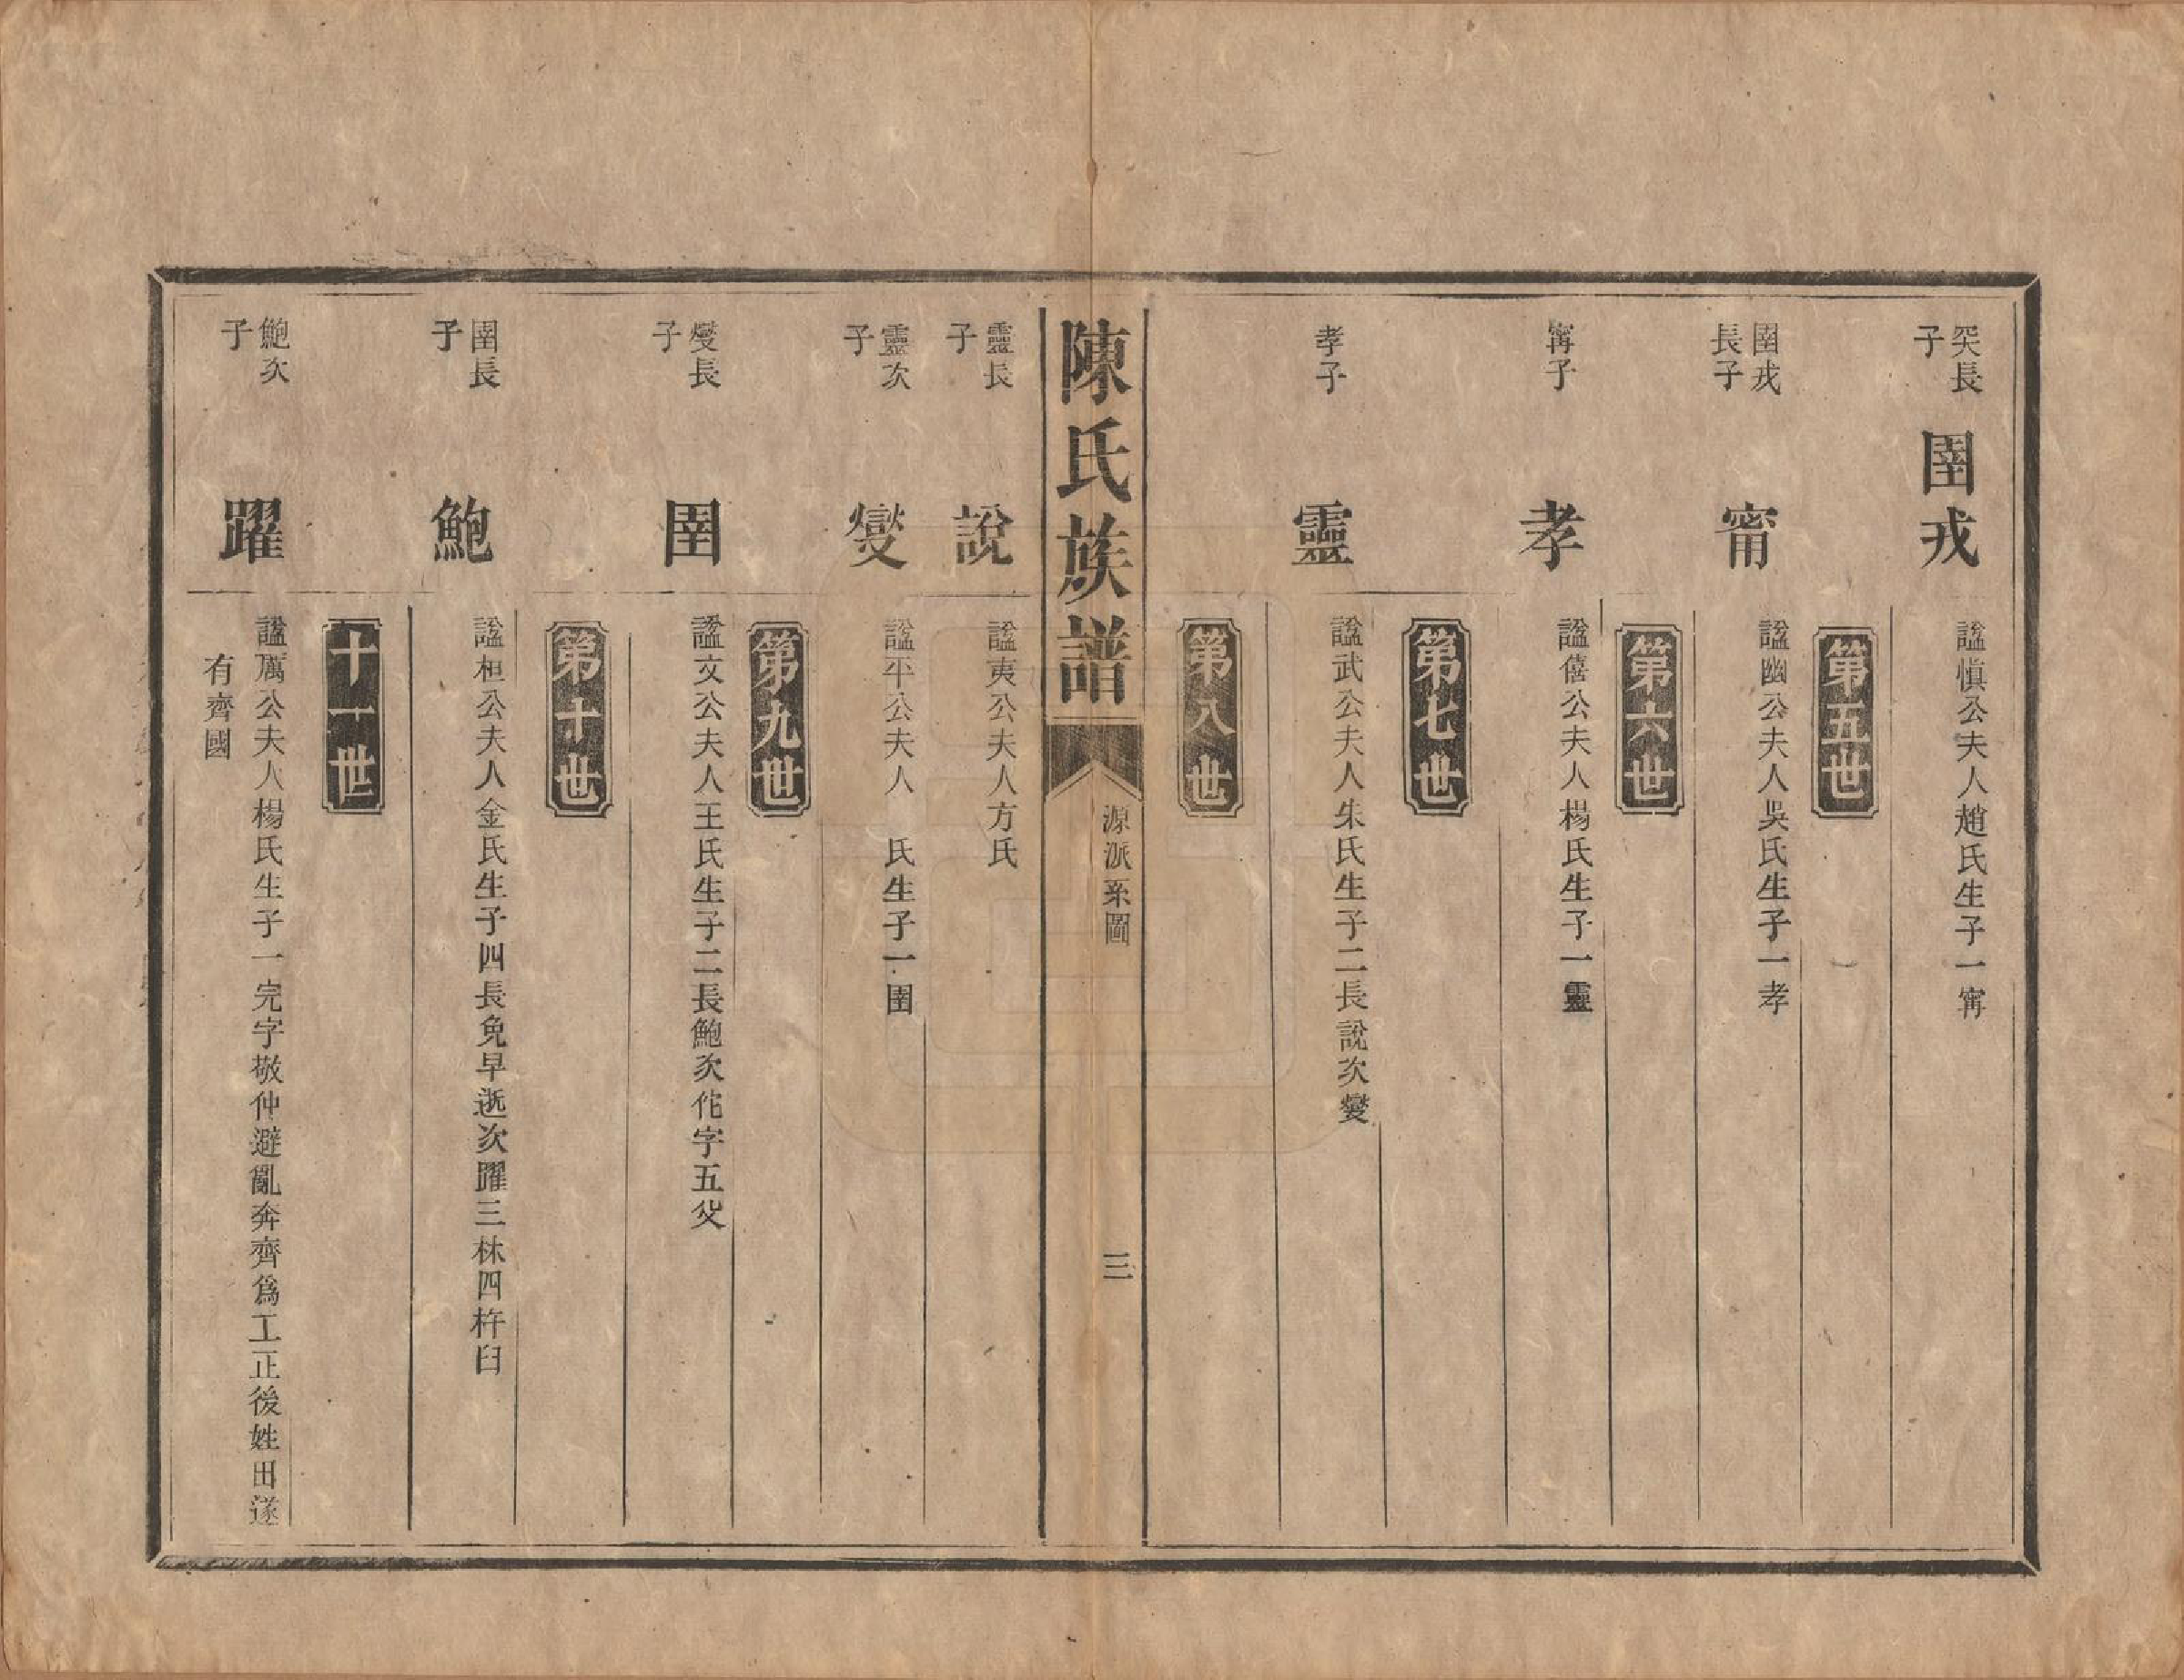 突長
子
圉戎
諡慎公夫人趙氏生子一甯
第五世
圉戎
長子
甯
諡幽公夫人吳氏生子一孝
第六世
甯子
孝
諡僖公夫人楊氏生子一靈
第七世
孝子
靈
諡武公夫人朱氏生子二長說次燮
第八世
陳氏族譜
源派系圖
三
靈長
子
說
諡夷公夫人方氏
靈次
子
燮
諡平公夫人 氏生子一圉
第九世
燮長
子
圉
諡文公夫人王氏生子二長鮑次佗字五父
第十世
圉長
子
鮑
諡桓公夫人金氏生子四長免早逝次躍三林四杵臼
十一世
鮑次
子
躍
諡厲公夫人楊氏生子一完字敬仲避亂奔齊為工正後姓田遂
有齊國